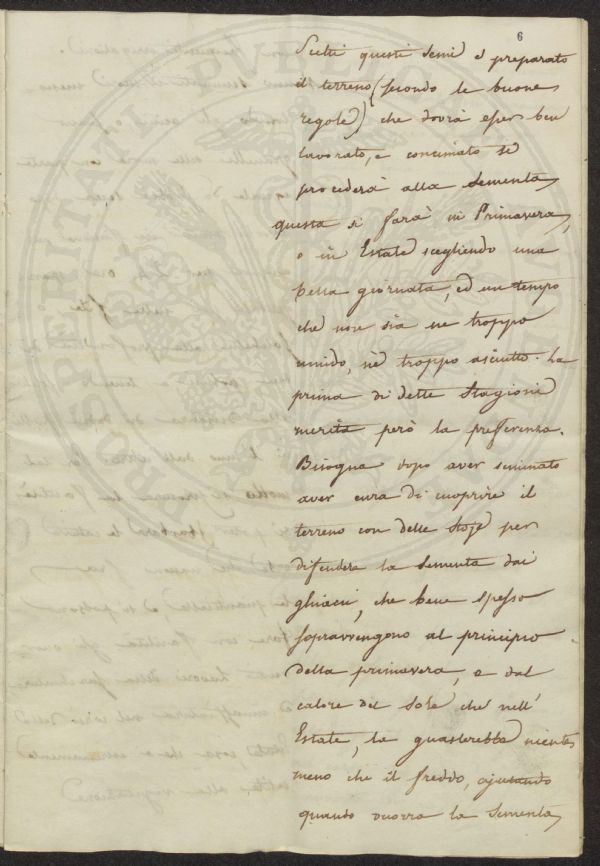 6
Scelti questi semi e preparato
il terreno (secondo le buone
regole) che dovrà esser ben
lavorato, e concimato si
procederà alla Sementa,
questa si farà in Primavera,
o in Estate scegliendo una
bella giornata, ed un tempo
che non sia ne troppo
umido, nè troppo asciutto. La
prima di dette Stagioni
merita però la preferenza.
Bisogna dopo aver seminato
aver cura di cuoprire il
terreno con delle Stoje per
difendere la Sementa dai
ghiacci, che bene spesso
sopravvengono al principio
della primavera, e dal
calore del Sole che nell'
Estate, la guasterebbe niente
meno che il freddo,
quando la Sementa,
PROSPERITATI PUBLICAE